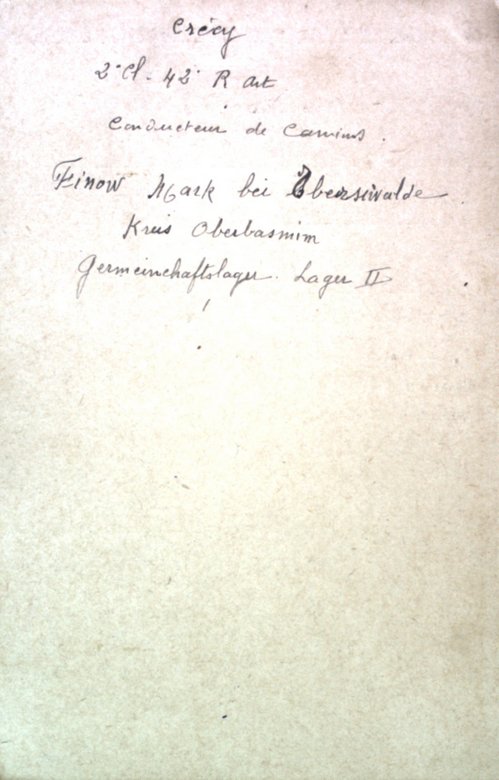 Crécy
2e Cl. 42e R Art
Conducteur de Camions.
Finow Mark bei Eberswalde
Kreis Oberbasmim
Germeinchaftslager. Lager II